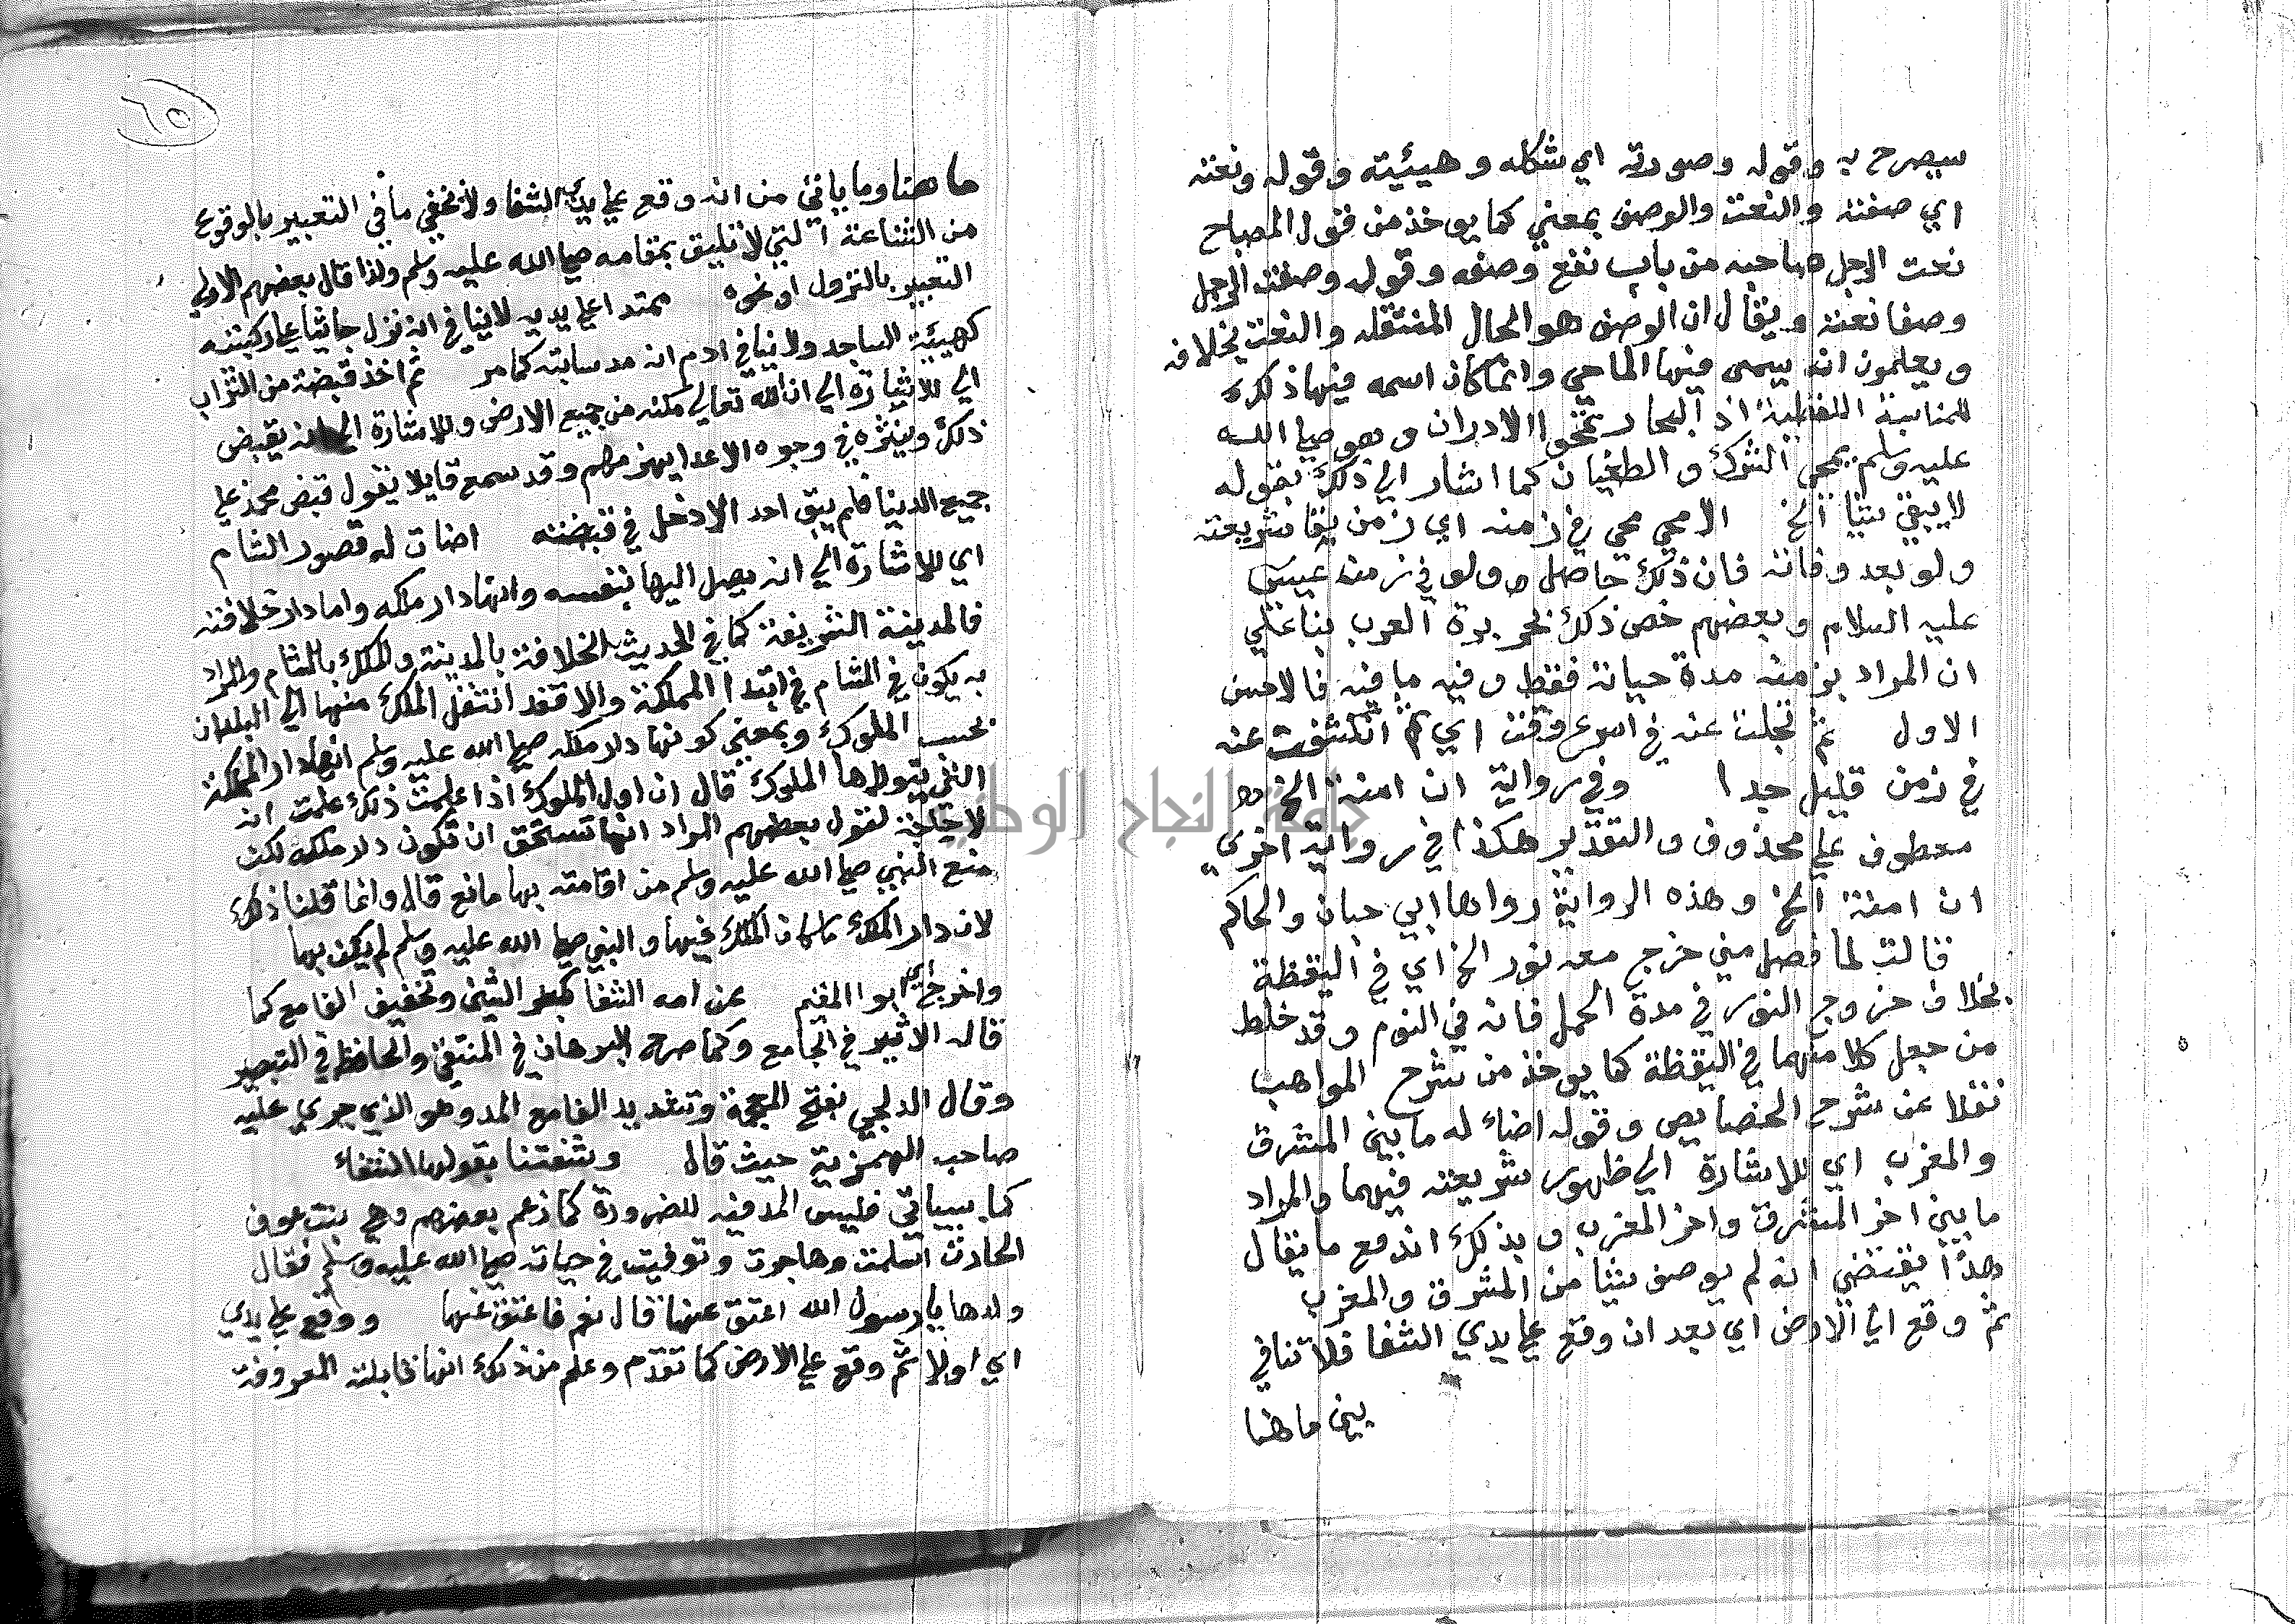 سيصرح به وقوله وصورته اي شكله وهيئيته وقوله ونعته
اي صفته والنعت والوصف بمعني كما يوخذ من قول المصباح
نعت الرجل صاحبه من باب نفع وصفه وقوله وصفت الرجل
وصفا نعته ويقال ان الوصف هو الحال المنتقله والنعت بخلافه
ويعلمون انه يسمى فيها الماحي وانما كان اسمه فيها ذلك
للمناسبة اللفظية اذ البحار تمحوا الادران وهو صلي الله
عليه وسلم يمحي الشرك والطغيان كما اشار الي ذلك بقوله
لا يبقي شيا الخ الا محي محي في زمنه اي زمن بقا شريعته
ولو بعد وفاته فان ذلك حاصل ولو في زمن عيسي
عليه السلام وبعضهم خص ذلك بجزيرة العرب بنا علي
ان المراد بزمنه مدة حياته فقط وفيه ما فيه فالاحسن
الاول ثم تجلت عنه في اسرع وقت اي ثم انكشفت عنه
في زمن قليل جدا وفي رواية ان امنة الخ
معطوف علي محذوف والتقدير هكذا في رواية اخري
ان امنة الخ وهذه الرواية رواها ابي حبان والحاكم
قالت لما فصل مني خرج معه نور الخ اي في اليقظة
بخلاف خروج النور في مدة الحمل فانه في النوم وقد خلط
من جعل كلا منهما في اليقظة كما يوخذ من شرح المواهب
نقلا عن شرح الخصايص وقوله اضاء له ما بين المشرق
والمغرب اي للاشارة الي ظهور شريعته فيهما والمراد
ما بين اخر المشرق واخر المغرب وبذلك اندفع ما يقال
هذا يقتضي انه لم يوصف شيا من المشرق والمغرب
ثم وقع الي الارض اي بعد ان وقع علي يدي الشفا فلا تنافي
بين ما هنا
ما هنا وما ياتي من انه وقع علي يدي الشفا ولا يخفي ما في التعبير بالوقوع
من الشناعة التي لا تليق بمقامه صلي الله عليه وسلم ولذا قال بعضهم الاولي
التعبير بالنزول او نحوه معتمدا علي يديه لا ينافي انه نزل جاثيا علي ركبتيه
كهيئية الساجد ولا ينافي ادم انه مد سبابته كما مر ثم اخذ قبضة من التراب
اي للاشارة الي ان الله تعالي مكنه من جميع الارض وللاشارة الي انه يقبض
ذلك وينثره في وجوه الاعدا يهزمهم وقد سمع قايلا يقول قبض محمد علي
جميع الدنيا فلم يبق احد الا دخل في قبضته اضات له قصور الشام
اي للاشارة الي انه يصل اليها بنفسه وانها دار ملكه واما دار خلافته
فالمدينة الشريفة كما في الحديث الخلافة بالمدينة والملك بالشام والمراد
به يكون في الشام في ابتدا المملكة والا فقد انتقل الملك منها الي البلدان
بحسب الملوك وبمعني كونها دار ملكه صلي الله عليه وسلم انها دار المملكة
التي يتولاها الملوك قال ان اول الملوك اذا علمت ذلك علمت انه
لا حاجة لقول بعضهم المراد انها تستحق ان تكون دار ملكه لكن
منع النبي صلي الله عليه وسلم من اقامته بها مانع قال وانما قلنا ذلك
لان دار الملك ما كان الملك فيها والنبي صلي الله عليه وسلم لم يكن بها
واخرج اي ابوا لنعيم عن امه الشفا بكسر الشين وتخفيف الفا مع كما
قاله الاثير في الجامع وكما صرح البرهان في المنتقي والحافظ في التبصير
وقال الدلجي بفتح المعجمة وتشديد الفا مع المد وهو الذي جري عليه
صاحب الهمزية حيث قال وشفتنا بقولها الشفاء
كما سياتي فليس المد فيه للضرورة كما زعم بعضهم وهي بنت عوف
الحارث اسلمت وهاجرت وتوفيت في حياته صلي الله عليه وسلم فقال
ولدها يا رسول الله اعتق عنها قال نعم فاعتق عنها ووقع علي يدي
اي اولا ثم وقع علي الارض كما تقدم وعلم من ذلك انها قابلته المعروفة